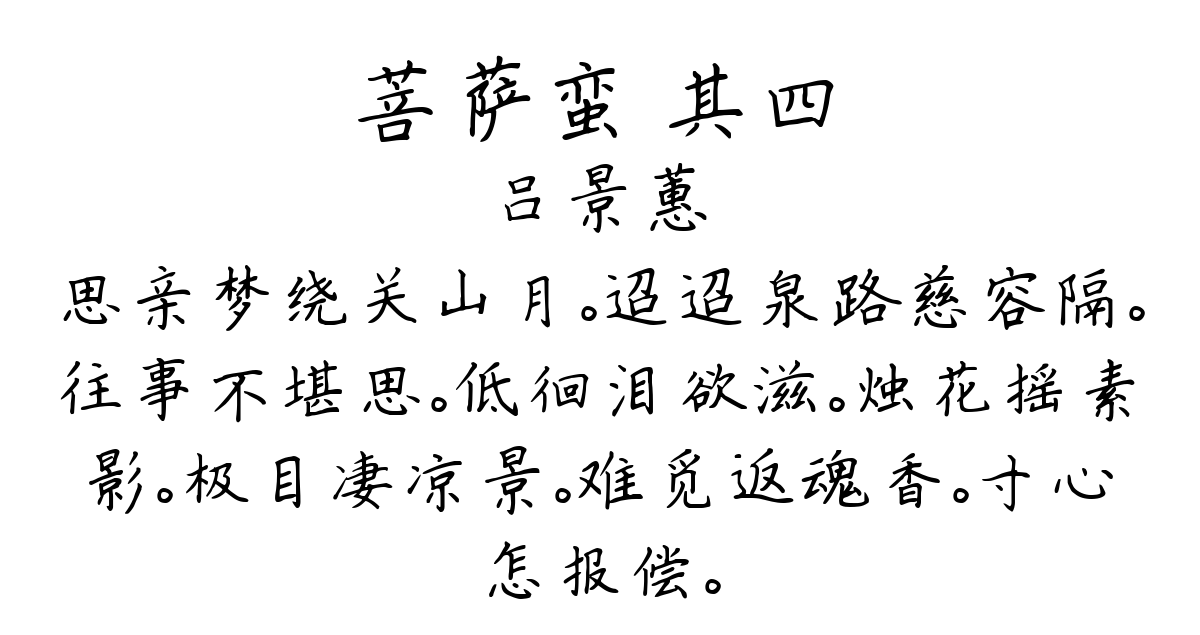 菩萨蛮 其四
吕景蕙
思亲梦绕关山月。迢迢泉路慈容隔。
往事不堪思。低徊泪欲滋。烛花摇素
影。极目凄凉景。难觅返魂香。寸心
怎报偿。